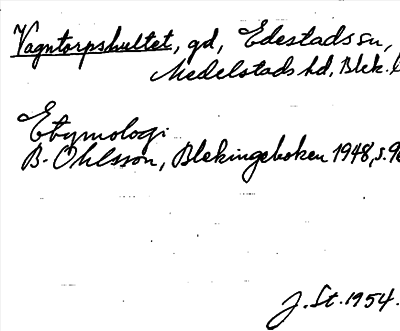 Vagntorpshultet, gd, Edestads sn,
Medelstads hd, Blek. l
Etymologi
B. Ohlsson, Blekingeboken 1948, s. 96
J. St. 1954.